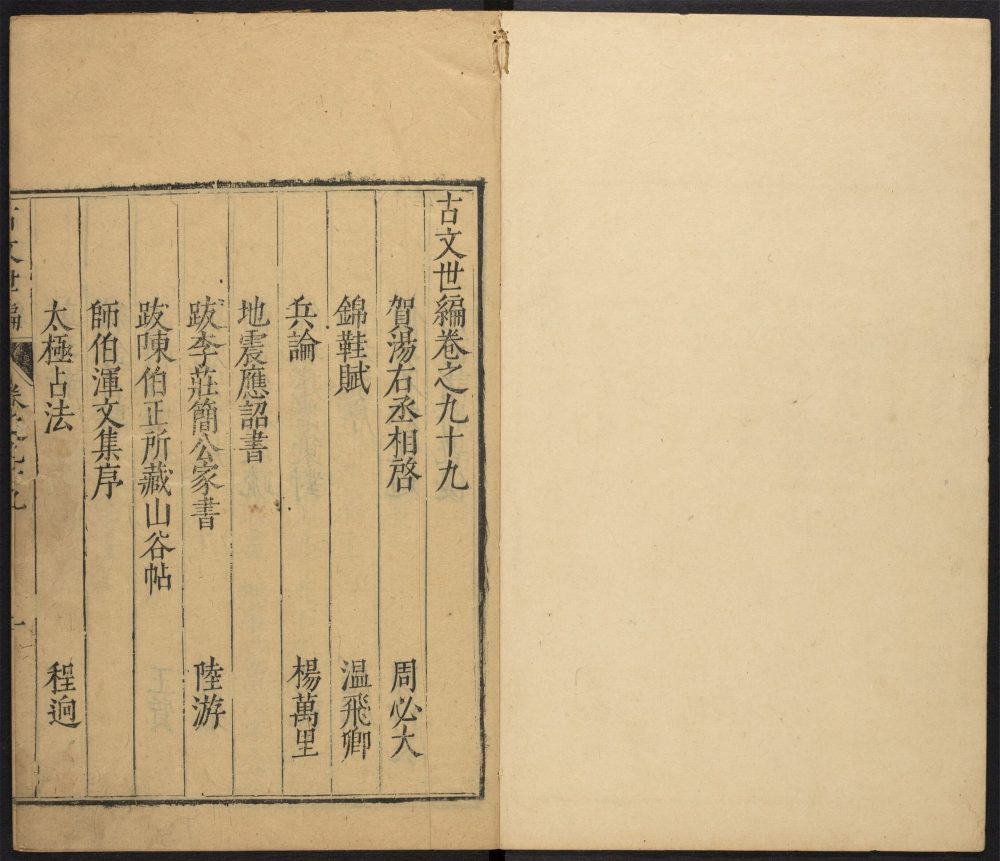 古文世編卷之九十九
賀湯右丞相啓 周必大
錦鞋賦 温飛卿
兵論 楊萬里
地震應詔書
跋李莊簡公家書 陸游
跋陳伯正所藏山谷帖
師伯渾文集序
太極占法 程迥
古文世編 卷之九十九 一